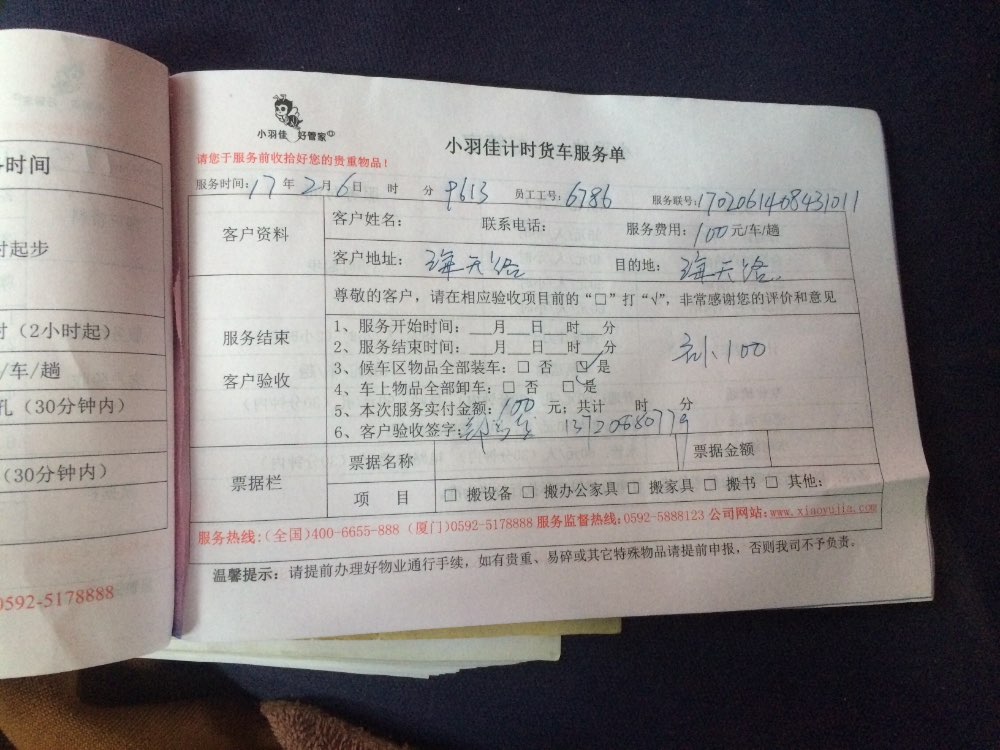 小羽佳 好管家
小羽佳计时货车服务单
请您于服务前收拾好您的贵重物品！
服务时间：17年2月6日 时 分 9613 员工工号：6786 服务联号：1702061408431011
客户资料
客户姓名： 联系电话： 服务费用：100元/车/趟
客户地址： 海天 目的地： 海天
服务结束
客户验收
尊敬的客户，请在相应验收项目前的“□”打“√”，非常感谢您的评价和意见
1、服务开始时间：__月__日__时__分
2、服务结束时间：__月__日__时__分
3、候车区物品全部装车：□ 否 □是
4、车上物品全部卸车：□ 否 □是
5、本次服务实付金额：100 元；共计 时 分
6、客户验收签字： 13720880779
100
票据栏
票据名称 票据金额
项 目 □ 搬设备 □ 搬办公家具 □ 搬家具 □ 搬书 □ 其他：
服务热线：(全国)400-6655-888 (厦门)0592-5178888 服务监督热线：0592-5888123 公司网站：www.xiaoyujia.com
温馨提示：请提前办理好物业通行手续，如有贵重、易碎或其它特殊物品请提前申报，否则我司不予负责。
时间
时起步
(2小时起)
/车/趟
孔（30分钟内）
(30分钟内)
0592-5178888